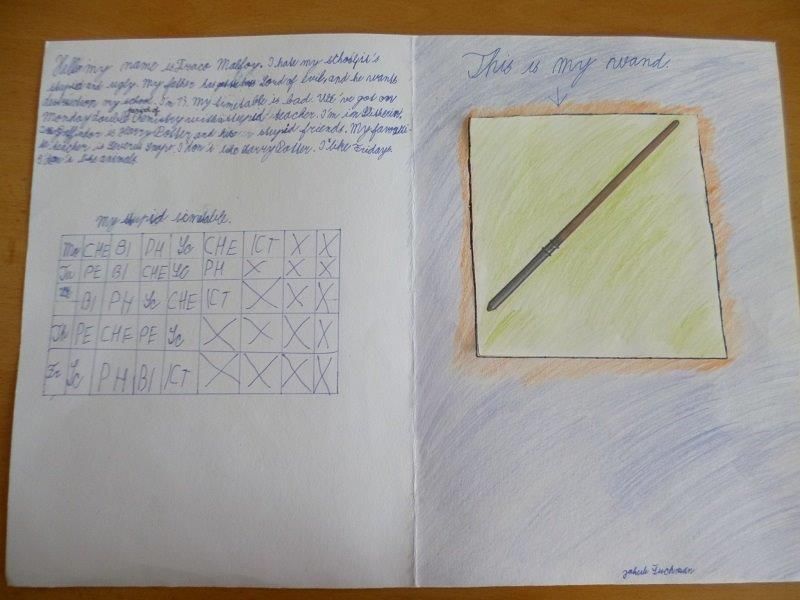 Hello my name is Draco Malfoy. I hate my school it's
stupid and ugly. My father Lord of evil, and he wants
destruction my school. I'm 13. My timetable is bad. We've got on
Monday double Chemistry with stupid teacher. I'm in
is Harry Potter and his stupid friends. My favouri-
te teacher is Severus Snape. I don't like Harry Potter. I like Fridays.
I don't like animals
My stupid timetable.
Mo CHE BI PH Sc CHE ICT X X
Tu PE BI CHE Sc PH X X X
BI PH Sc CHE ICT X X X
Th PE CHE PE Sc X X X X
Fr Sc PH BI ICT X X X X
This is my wand.
Jakub